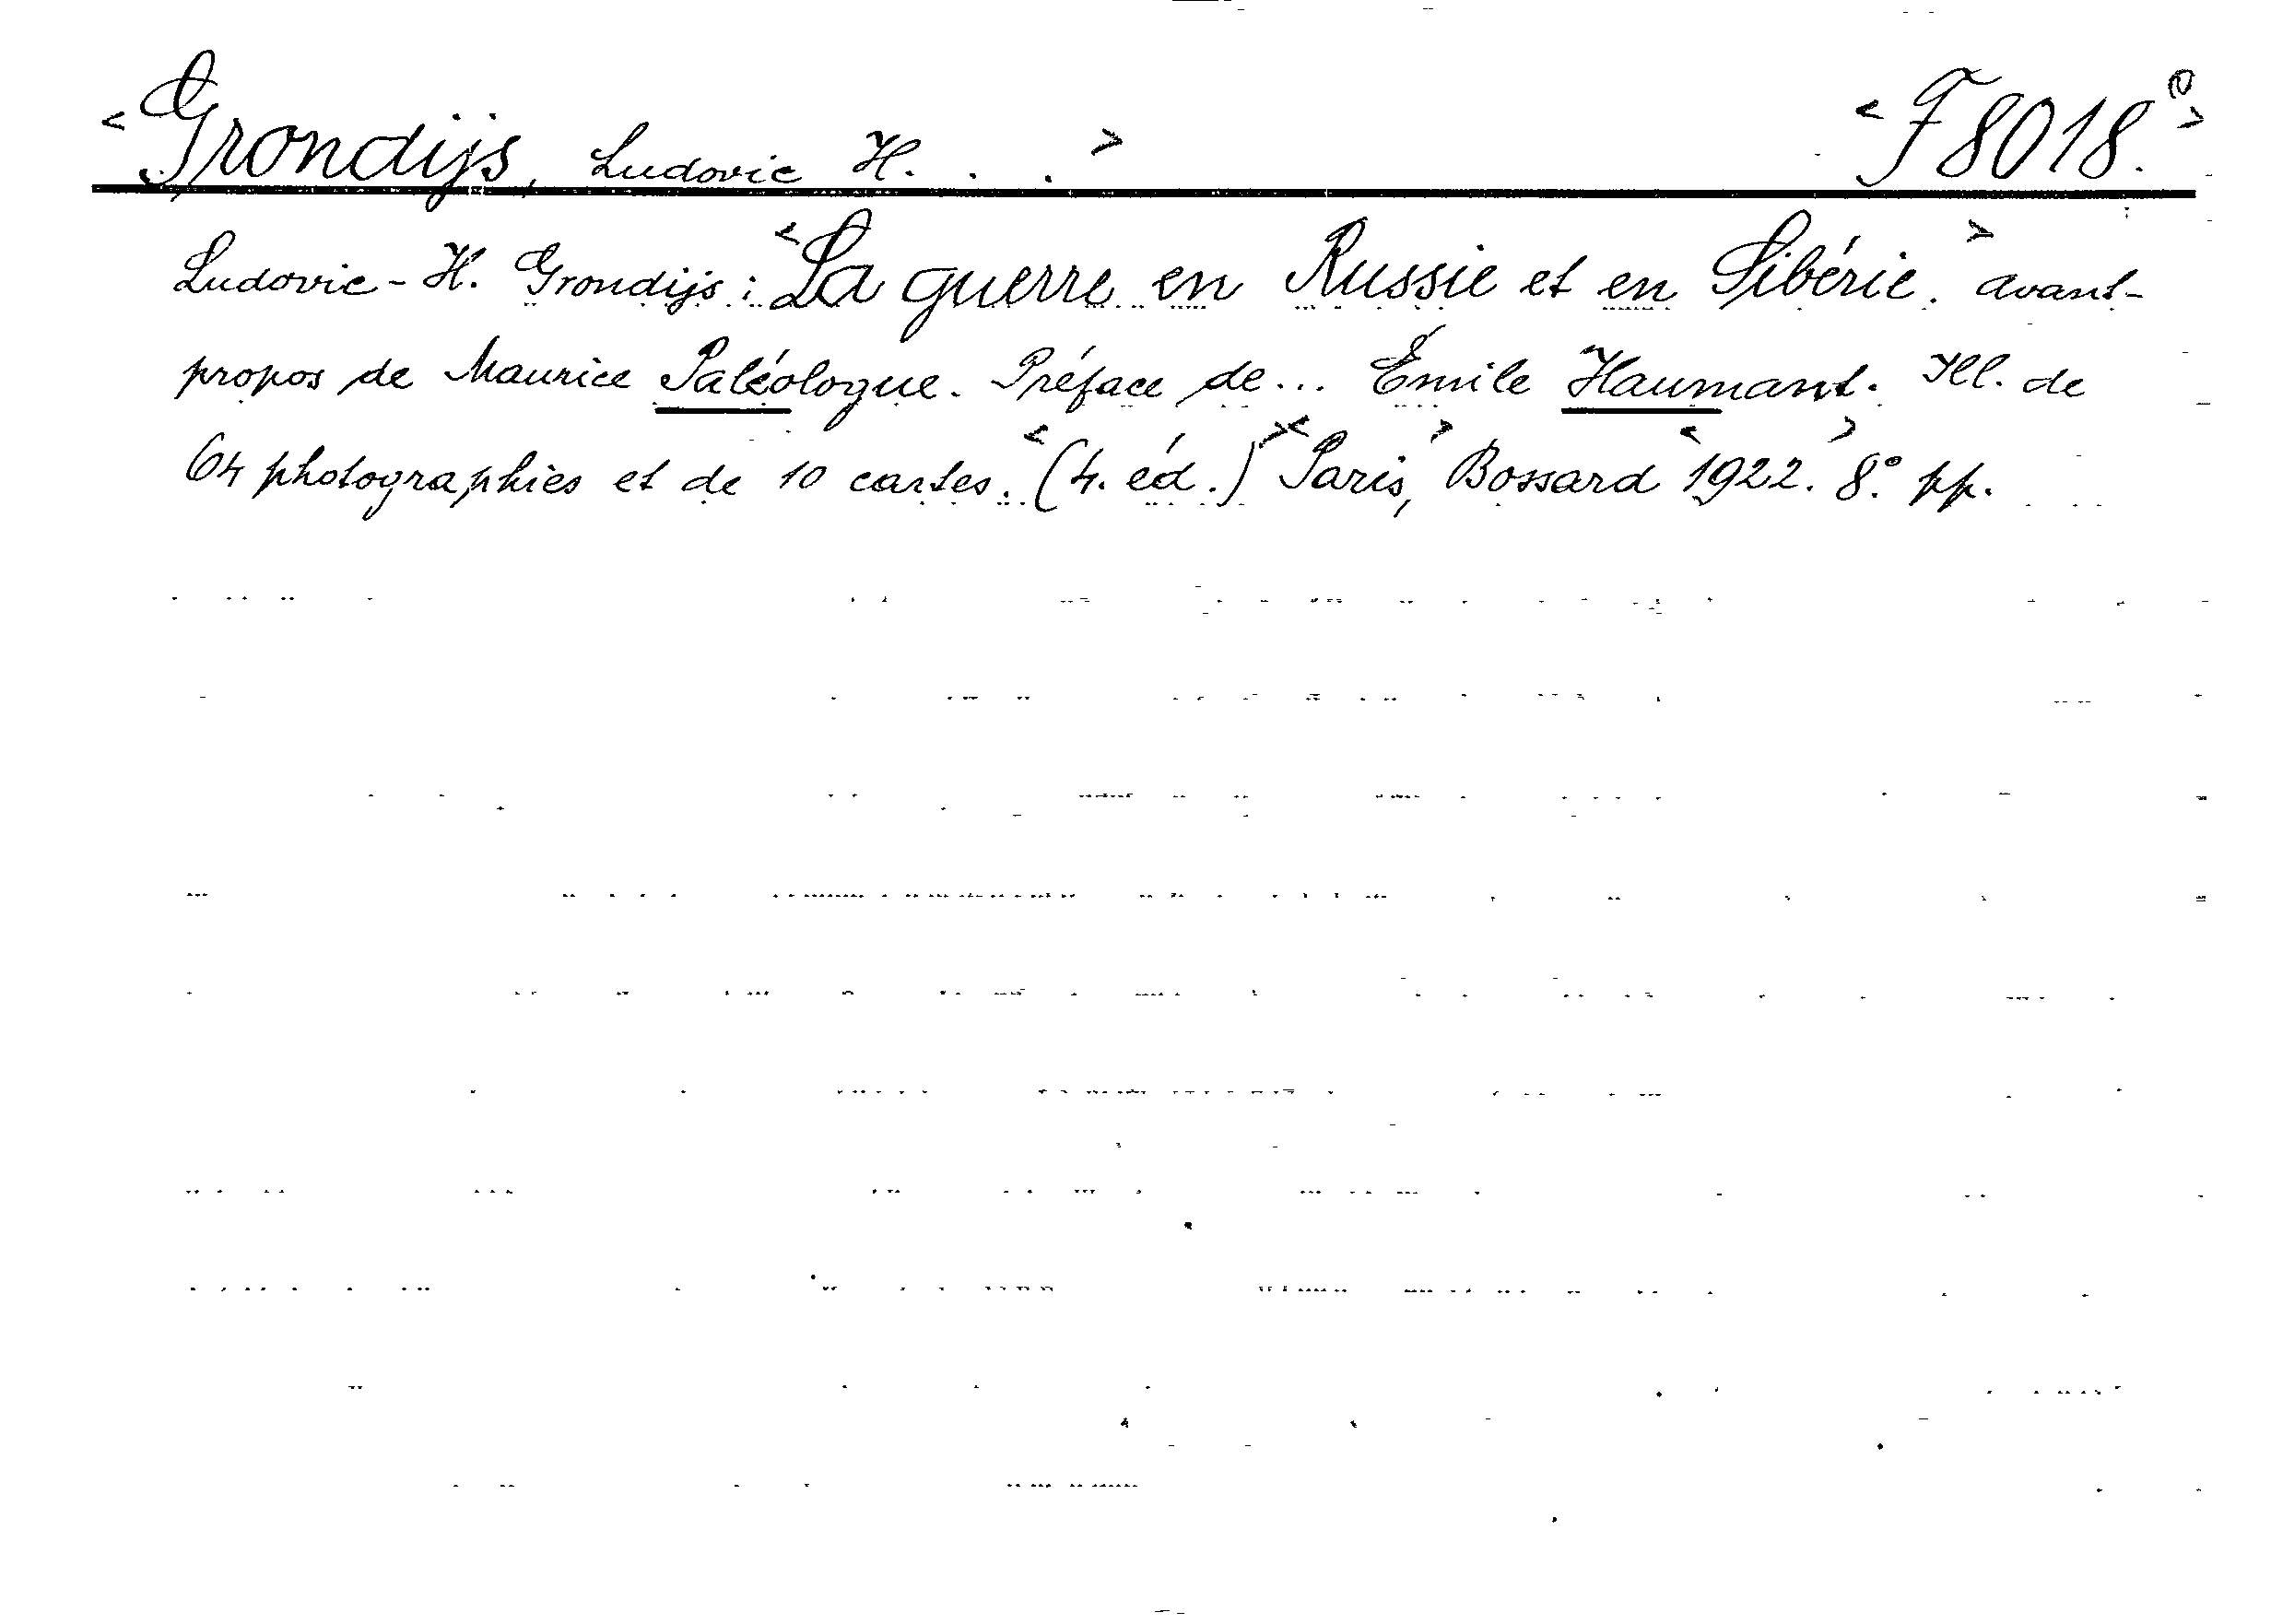 <Grondijs, Ludovic H. . .> <F8018.°>
Ludovic-H. Grondijs: <La guerre en Russie et en Sibérie.> avant-
propos de Maurice Paléologue. Préface de... Émile Haumant. Ill. de
64 photographies et de 10 cartes. <(4. éd.)> <Paris,> Bossard <1922.> 8.° pp.